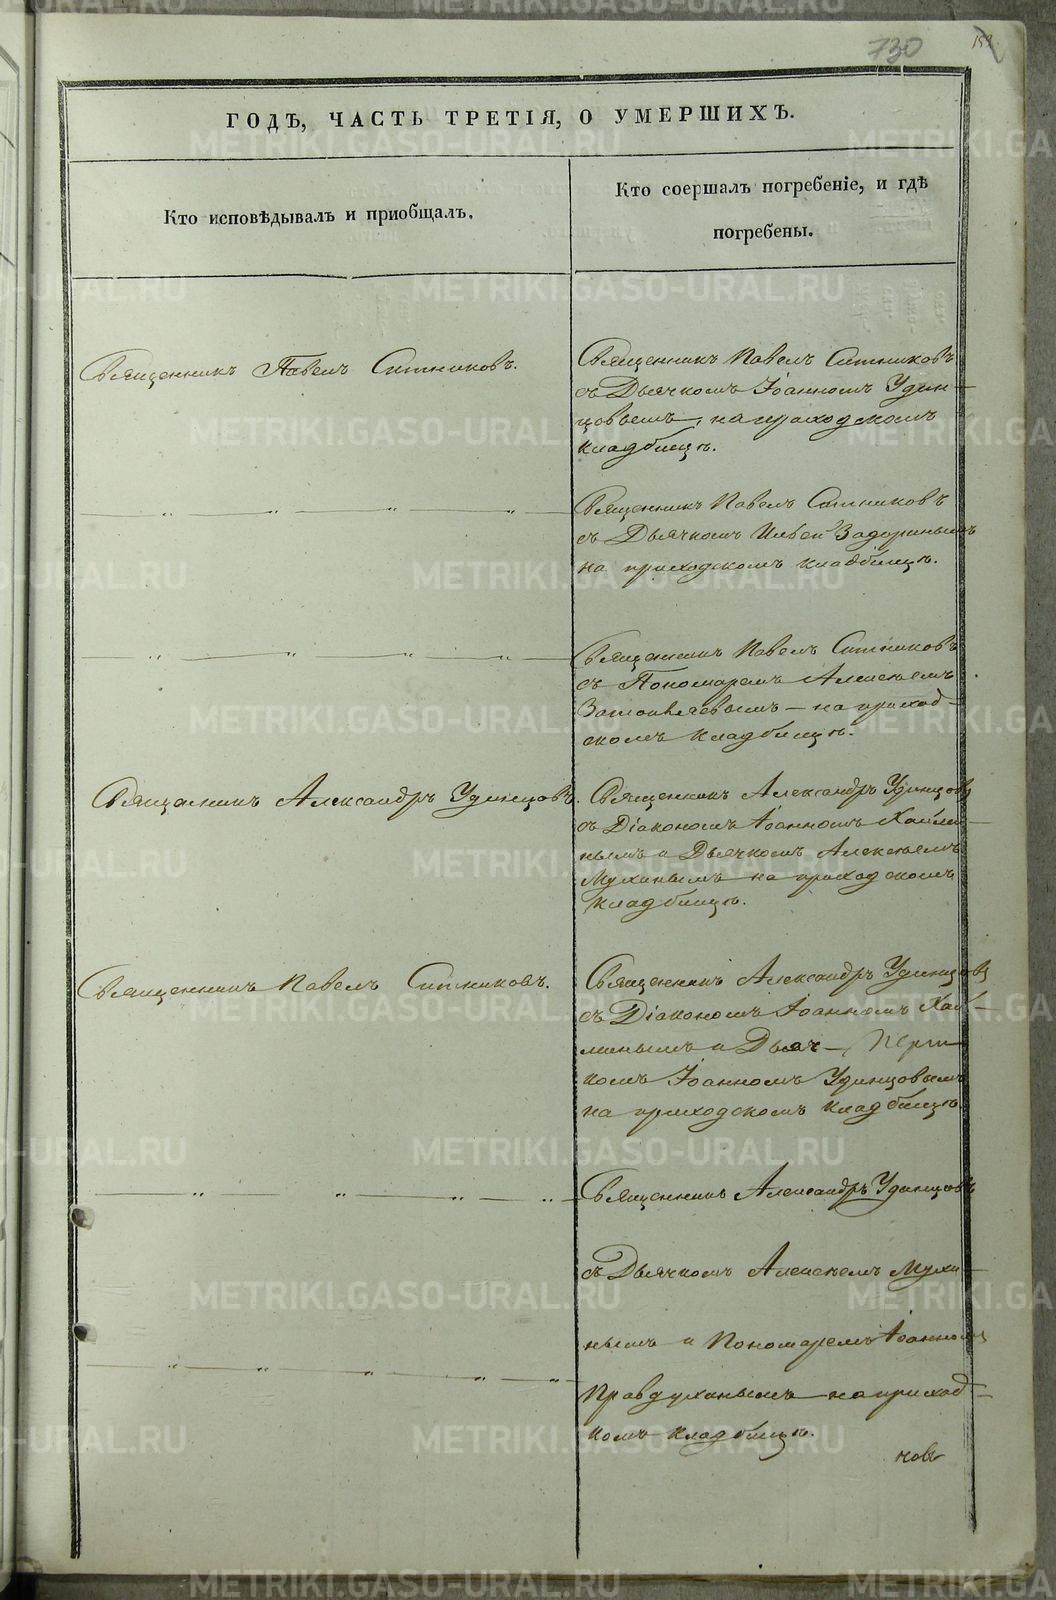 730
ГОДѢ, ЧАСТЬ ТРЕТІЯ, О УМЕРШИХЪ.
Кто исповѣдывалъ и приобщалъ.
Кто соершалъ погребеніе, и гдѣ
погребены.
Священникъ Павелъ Ситниковъ.
Священникъ Павелъ Ситниковъ
съ Дьячкомъ Іоанномъ Удин-
цовымъ, на приходскомъ
кладбищѣ.
— " — " — " — " —
Священникъ Павелъ Ситниковъ
съ Дьячкомъ Ильей Задоринымъ
на приходскомъ кладбищѣ.
— " — " — " — " —
Священникъ Павелъ Ситниковъ
съ Пономаремъ Алексѣемъ
на приход-
скомъ кладбищѣ.
Священникъ Александръ Удинцовъ.
Священникъ Александръ Удинцовъ
съ Діакономъ Іоанномъ Хаймин-
нымъ и Дьячкомъ Алексѣемъ
Мухинымъ на приходскомъ
кладбищѣ.
Священникъ Павелъ Ситниковъ.
Священникъ Александръ Удинцовъ
съ Діакономъ Іоанномъ Хай-
минымъ и Дьяч-
комъ Іоанномъ Удинцовымъ
на приходскомъ кладбищѣ.
— " — " — " — " —
Священникъ Александръ Удинцовъ
съ Дьячкомъ Алексѣемъ Мухи-
нымъ и Пономаремъ Іоанномъ
— " — " — " — " —
Правдухинымъ на приход-
комъ кладбищѣ.
METRIKI.GASO-URAL.RU